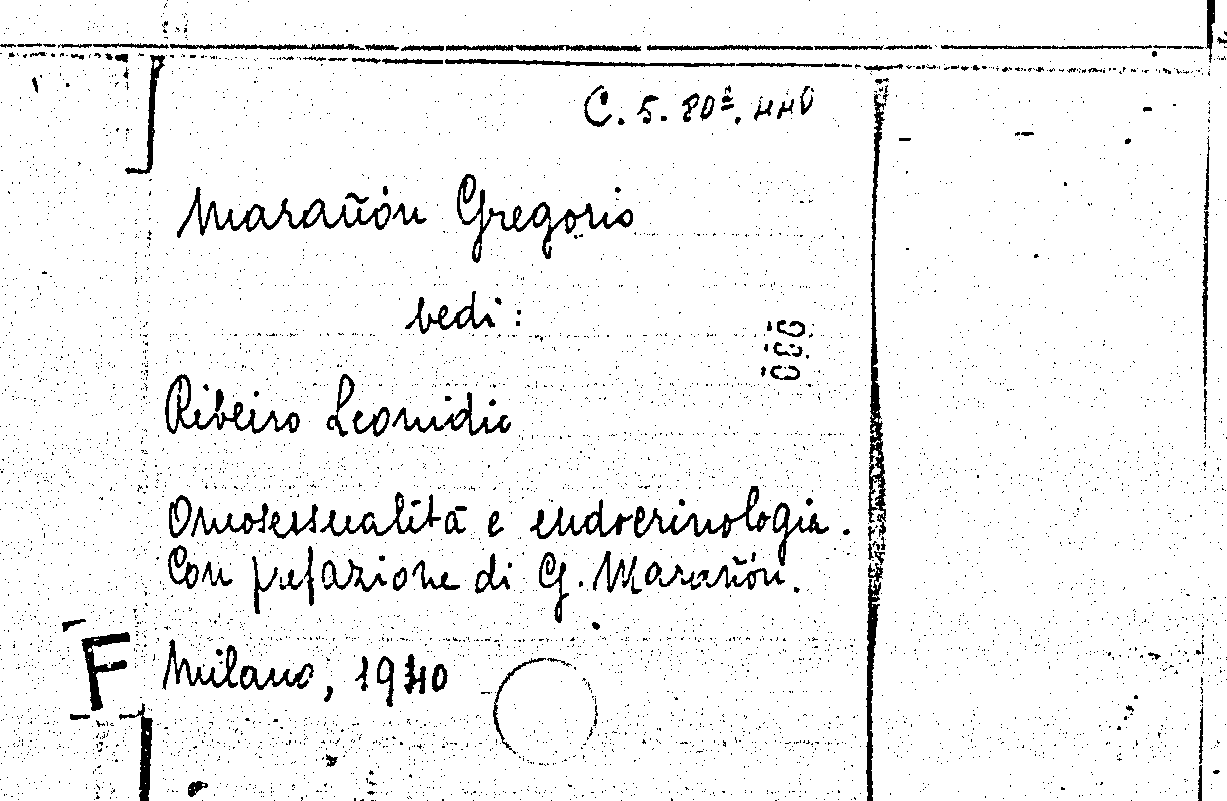 C. 5. 80ª. 440
Marañón Gregorio
vedi:
Ribeiro Leonidio
Omosessualità e endocrinologia.
Con prefazione di G. Marañón.
F
Milano, 1940